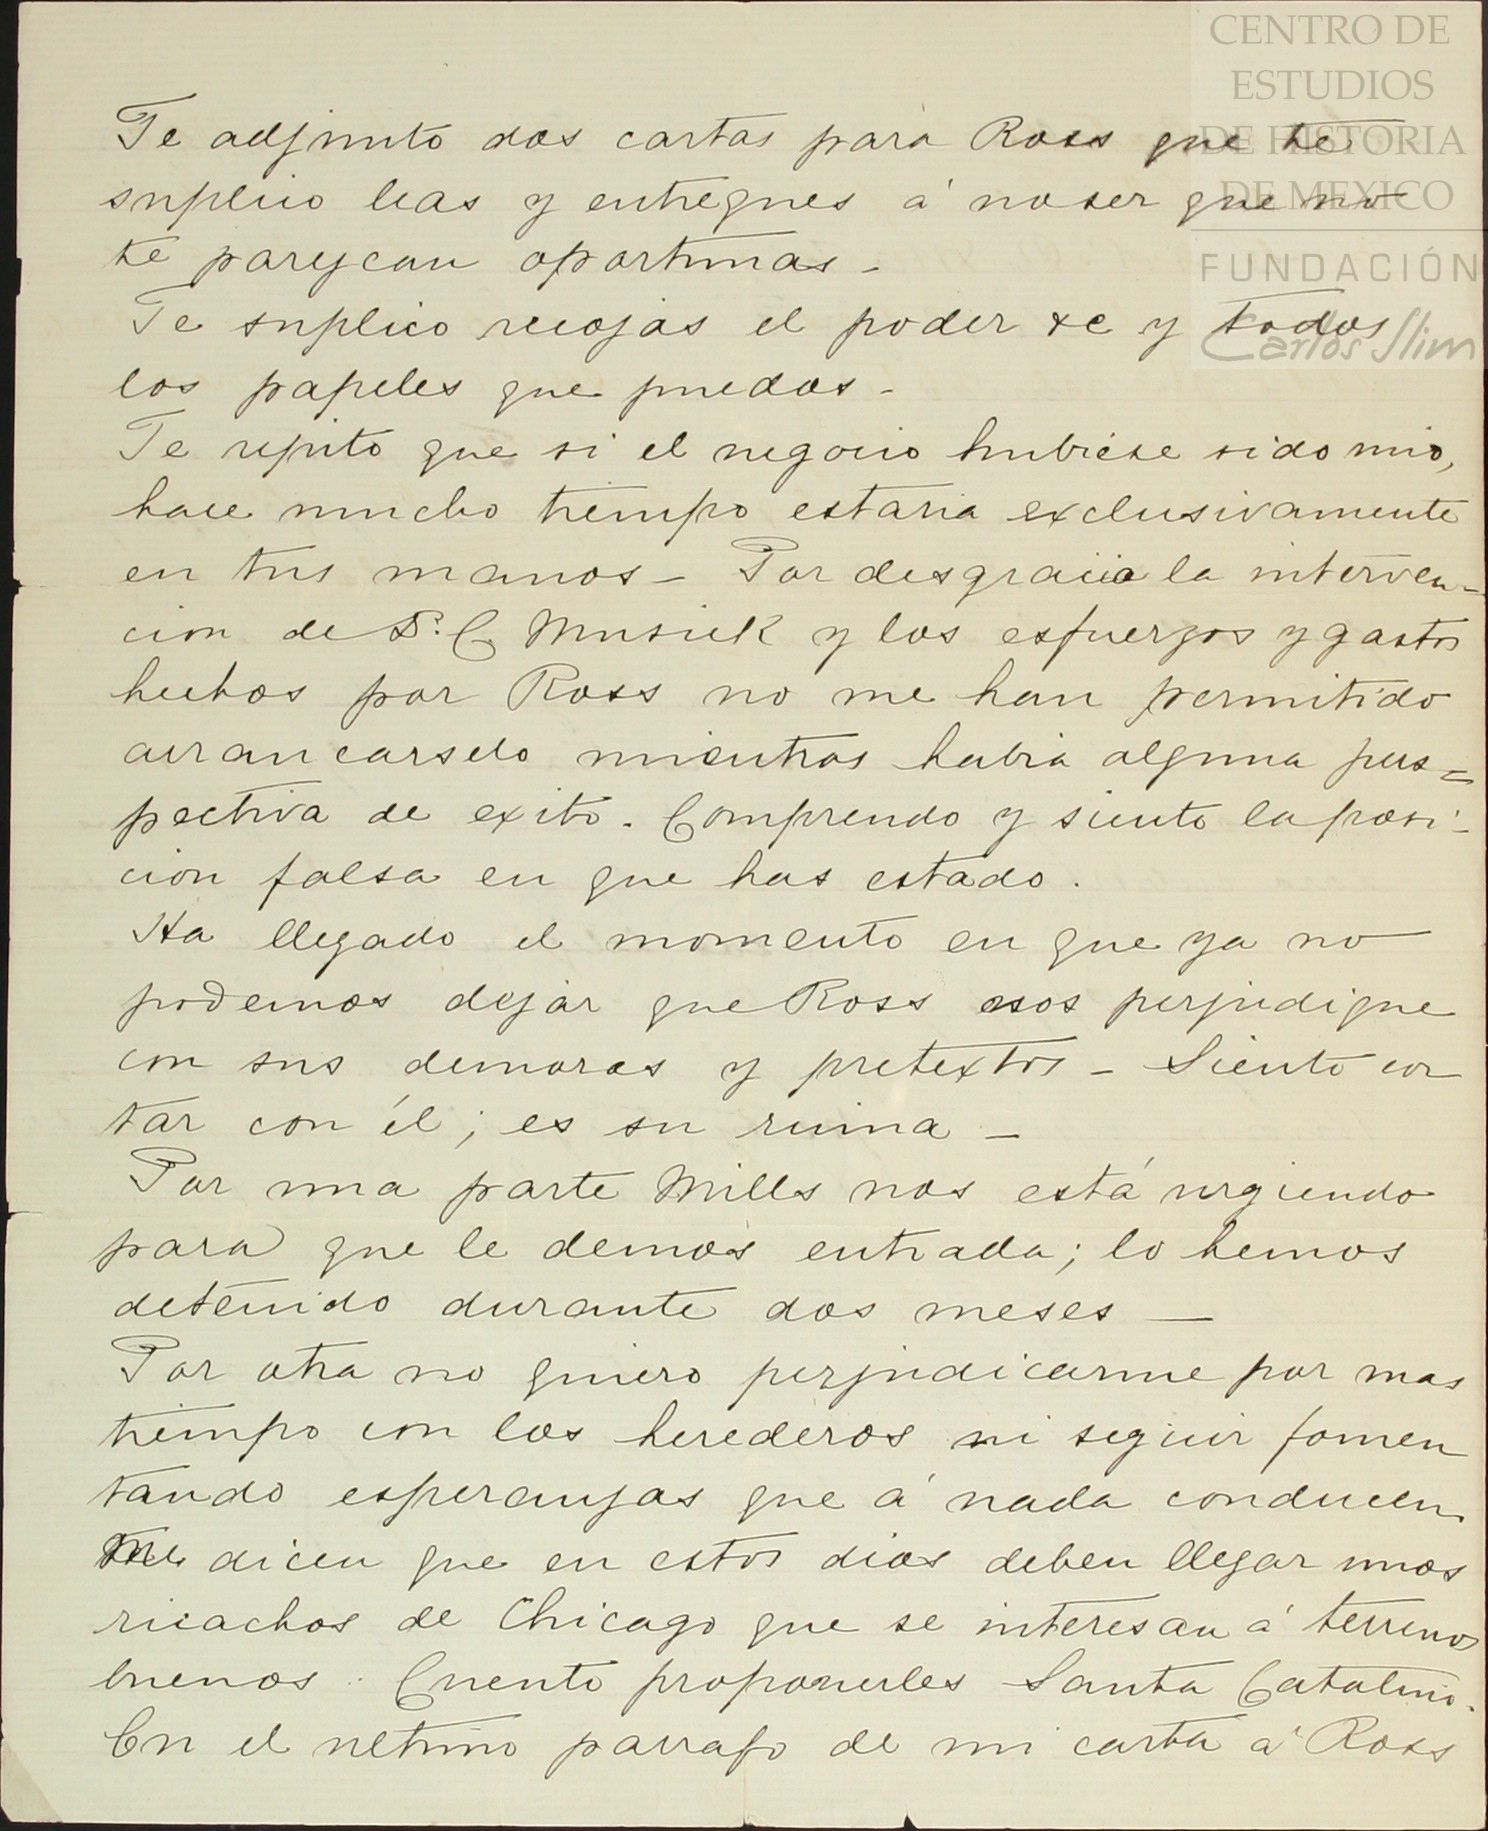 CENTRO DE
ESTUDIOS
DE HISTORIA
DE MEXICO
FUNDACIÓN
Carlos Slim
Te adjunto dos cartas para Ross que te
suplico leas y entregues á no ser que no
te parezcan oportunas -
Te suplico recojas el poder &c y todos
los papeles que puedas -
Te repito que si el negocio hubiese sido mio,
hace mucho tiempo estaria exclusivamente
en tus manos - Por desgracia la interven-
cion de D. C. Musick y los esfuerzos y gastos
hechos por Ross no me han permitido
arrancarselo mientras habia alguna pers=
pectiva de exito. Comprendo y siento la posi-
cion falsa en que has estado.
Ha llegado el momento en que ya no
podemos dejar que Ross nos perjudique
con sus demoras y pretextos - Siento cor
tar con él; es su ruina -
Por una parte Mills nos está urgiendo
para que le demos entrada; lo hemos
detenido durante dos meses —
Por otra no quiero perjudicarme por mas
tiempo con los herederos ni seguir fomen
tando esperanzas que á nada conducen.
Me dicen que en estos dias deben llegar unos
ricachos de Chicago que se interesan á terrenos
buenos. Cuento proponerles Santa Catalina.
En el ultimo parrafo de mi carta á Ross